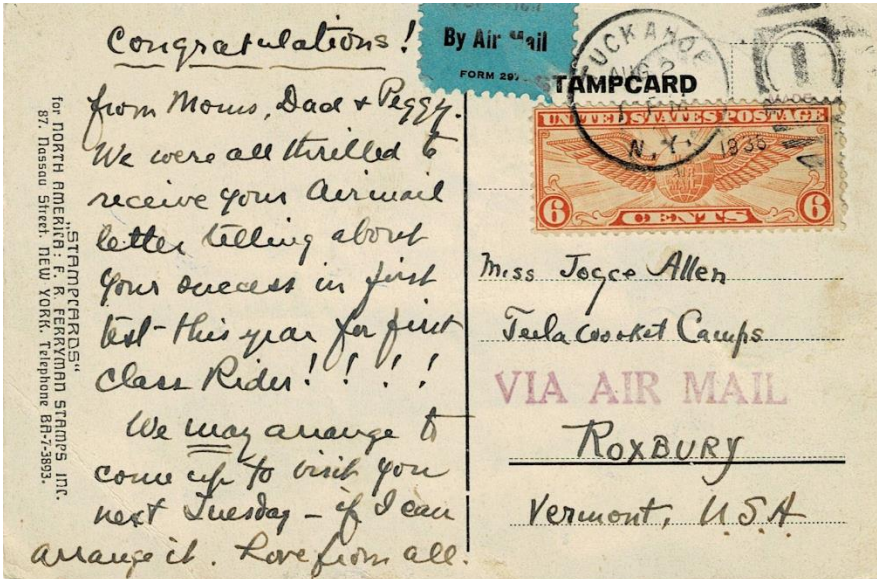 Congratulations!
from Moms, Dad & Peggy.
We were all thrilled to
receive your Airmail
letter telling about
your success in first
test - this year for first
class Rider! ! ! !
We may arrange to
come up to visit you
next Tuesday - if I can
arrange it. Love from all.
"STAMPCARDS"
for NORTH AMERICA: F. R. FERRYMAN STAMPS INC.
87. Nassau Street. NEW YORK. Telephone BA-7-3893.
By Air Mail
FORM 29
TAMPCARD
TUCKAHOE
AUG 2
PM
N.Y.
1936
UNITED STATES POSTAGE
6 CENTS 6
Miss Joyce Allen
Teela Wooket Camps
VIA AIR MAIL
ROXBURY
Vermont, U.S.A